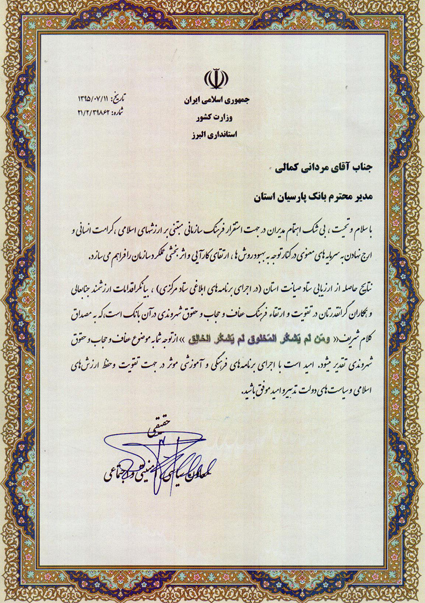 جمهوری اسلامی ایران
وزارت کشور
استانداری البرز
تاریخ: ۱۳۹۵/۰۷/۱۱
شماره: ۲۱/۲/۳۹۸۶۲
جناب آقای مردانی کمالی
مدیر محترم بانک پارسیان استان
با سلام و تحیت، بی شک اهتمام مدیران در جهت استقرار فرهنگ سازمانی مبتنی بر ارزشهای اسلامی، کرامت انسانی و
ارج نهادن به سرمایه های معنوی در کنار توجه به بهبود روش ها، ارتقای کارآیی و اثربخشی عملکرد سازمان را فراهم می سازد.
نتایج حاصله از ارزیابی ستاد صیانت استان (در اجرای برنامه های ابلاغی ستاد مرکزی)، بیانگر اقدامات ارزشمند جنابعالی
و همکاران گرانقدرتان در تقویت و ارتقاء فرهنگ عفاف و حجاب و حقوق شهروندی در آن بانک است، که به مصداق
کلام شریف « ومَن لَم یَشکُر المَخلوق لَم یَشکُر الخالِق » از توجه شما به موضوع عفاف و حجاب و حقوق
شهروندی تقدیر میشود. امید است با اجرای برنامه های فرهنگی و آموزشی موثر در جهت تقویت و حفظ ارزش های
اسلامی و سیاست های دولت تدبیر و امید موفق باشید.
حقیقی
معاون سیاسی، امنیتی و اجتماعی